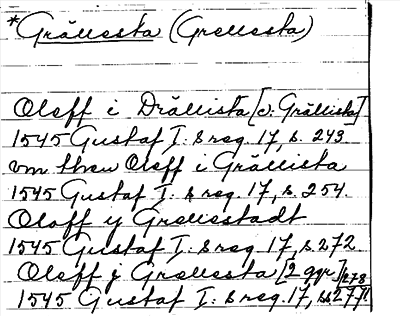 *Grällesta (Grellesta)
Oleff i Drällista [o: Grällista]
1545 Gustaf I: s reg. 17, s. 243
om then Oleff i Grällista
1545 Gustaf I: s reg. 17, s. 254
Oloff y Grellestadt
1545 Gustaf I: s reg. 17, s. 272
Oleff j Grellesta [2 ggr] 278
1545 Gustaf I: s reg. 17, ss. 277,